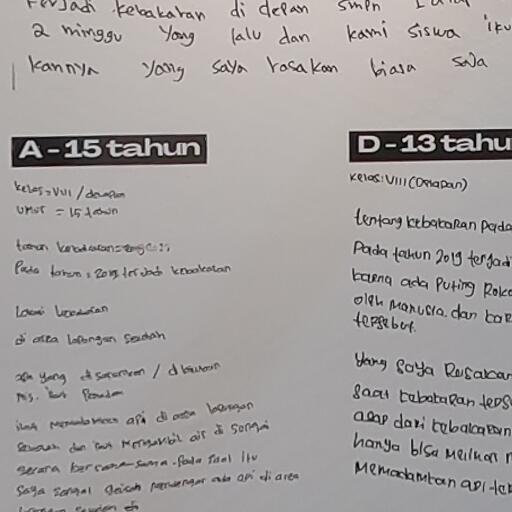 terjadi kebakaran di depan SMPN
2 minggu yang lalu dan kami siswa iku
kannya yang saya rasakan biasa saja
A - 15 tahun
kelas = VIII / delapan
UMUR = 15 tahun
Pada tahun = 2019 terjadi kebakaran
Lokasi kebakaran
di area lapangan sekolah
apa yang di
ikut memadamkan api di area lapangan
sekolah dan ikut mengambil air di sungai
secara bersama-sama. Pada saat itu
Saya sangat mendengar ada api di area
D - 13 tahu
kelas: VIII (Delapan)
tentang kebakaran pada
Pada tahun 2019 terjadi
karena ada Puting Roko
oleh Manusia. dan
tersebut.
Yang saya Rasakan
saat kebakaran ters
asap dari kebakaran
hanya bisa melihat
Memadamkan api